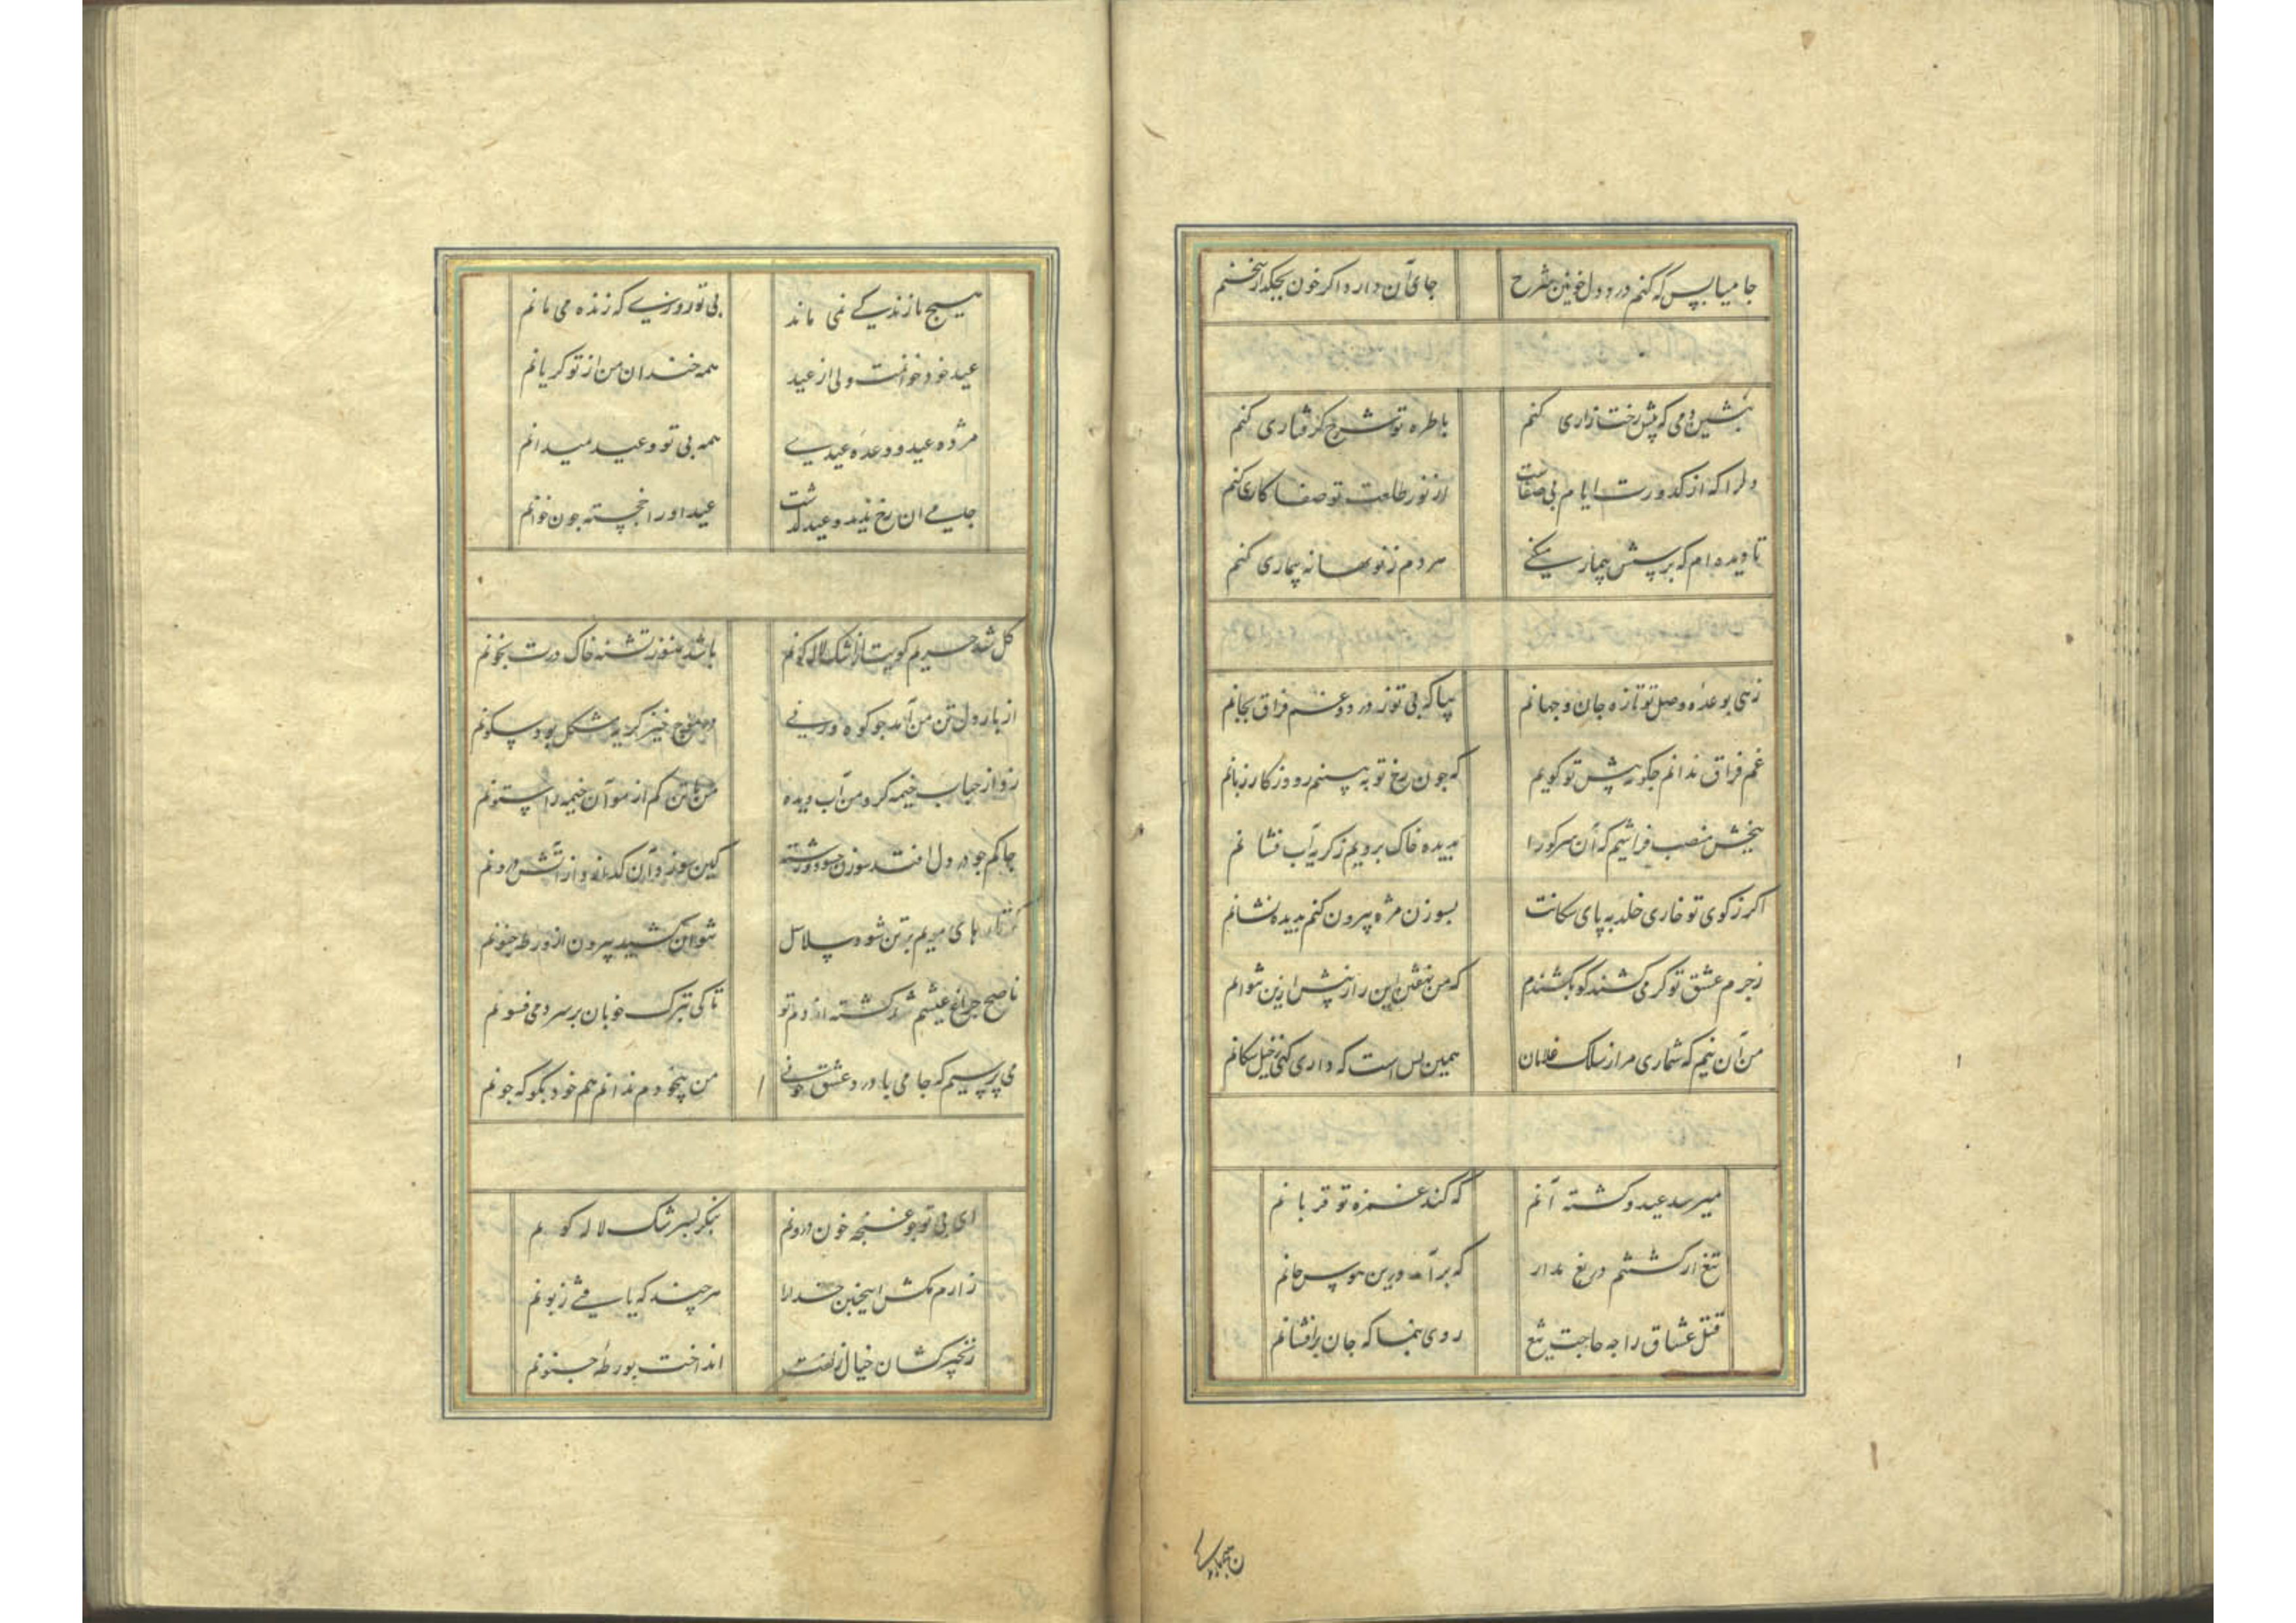 جامیا بس که کنم درد دل خونین شرح
جای آن دارد اگر خون بچکد از سخنم
بنشین دمی که پیش رخت زاری کنم
با طره تو شرح گرفتاری کنم
دلرا که از کدورت ایام بی صفاست
از نور طلعت تو صفا کاری کنم
تا دیده‌ام که پرسش بیمار میکنی
هر دم ز نو بهانه بیماری کنم
زهی بوعده وصل تو تازه جان و جهانم
بیا که بی تو ز درد و غم فراق بجانم
غم فراق ندانم چگونه پیش تو گویم
که چون رخ تو به بینم رود ز کار زبانم
ببخش منصب فراشیم که آن سر کو را
بدیده خاک بروبم ز گریه آب فشانم
اگر ز کوی تو خاری خلد به پای سگانت
بسوزن مژه بیرون کنم بدیده نشانم
ز جرم عشق تو گر می کشند کو بکشندم
که من نهفتن این راز بیش ازین نتوانم
من آن نیم که شماری مرا ز سلک غلامان
همین بس است که داری کنی ز خیل سگانم
میرسد عید و کشته آنم
که کند غمزه تو قربانم
تیغ از کشتنم دریغ مدار
که برآمد درین هوس جانم
قتل عشاق را چه حاجت تیغ
روی بنما که جان برافشانم
هیچ باز زندگی نمی ماند
بی تو روزی که زنده می مانم
عید خود خوانمت ولی از عید
همه خندان من از تو گریانم
مژده عید و وعده عیدی
همه بی تو وعید میدانم
جامی آن رخ ندید و عید گذشت
عید او را خجسته چون خوانم
گل شد حریم کویت از اشک لاله گونم
باشد هنوز تشنه خاک درت بخونم
از بار دل تن من آمد چو کوه ولی
در موج خیز گریه مشکل بود سکونم
زد از حباب خیمه گرد من آب دیده
من با تن کم از مو آن خیمه را ستونم
چاکم چو در دل افتد سوزن چه سود و رشته
کین سوزد و آن گدازد از آتش درونم
گر تارهای مویم بر تن شود سلاسل
نتوان کشید بیرون از ورطه جنونم
ناصح چراغ عیشم شد کشته از دم تو
تا کی بترک خوبان بر سر دمی فسونم
می پرسیم که جامی با درد عشق چونی
من بیخودم ندانم هم خود بگو که چونم
ای بی تو چو غنچه خون درونم
بنگر بسرشک لاله گونم
زارم مکش اینچنین خدا را
هر چند که یافتی زبونم
زنجیر کشان خیال زلفت
انداخت بورطه جنونم